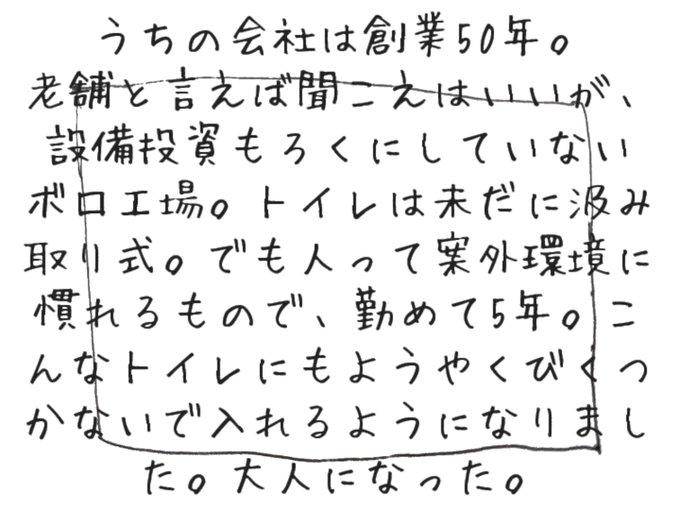 うちの会社は創業50年。
老舗と言えば聞こえはいいが、
設備投資もろくにしていない
ボロ工場。トイレは未だに汲み
取り式。でも人って案外環境に
慣れるもので、勤めて5年。こ
んなトイレにもようやくびくつ
かないで入れるようになりまし
た。大人になった。